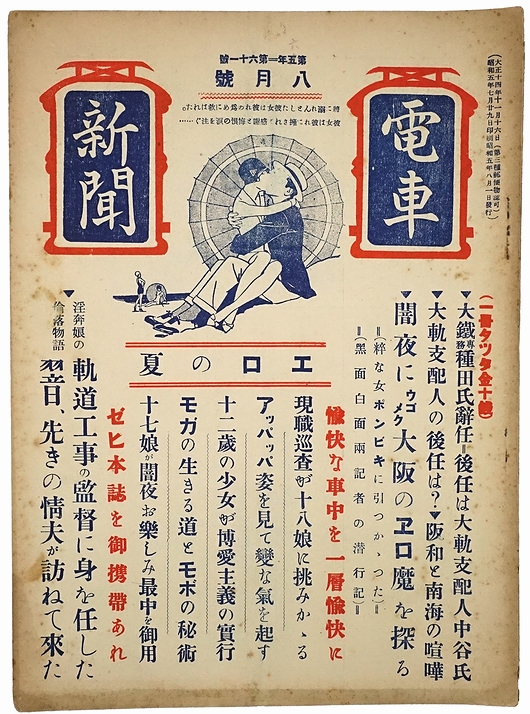 大正十四年十一月十六日(第三種郵便物認可)
昭和五年七月廿九日印刷昭和五年八月一日發行
電車
新聞
號一十六第=年五第
號月八
(一冊タツタ金十錢)
▼大鐵專務種田氏辭任=後任は大軌支配人中谷氏
▼大軌支配人の後任は?▼阪和と南海の喧嘩
闇夜にウゴメク大阪のヱロ魔を探る
=(粹な女ポンビキに引つかゝつた)=
=(黑面白面兩記者の潜行記)=
夏のロエ
愉快な車中を一層愉快に
現職巡査が十八娘に挑みかゝる
アッパッパ姿を見て變な氣を起す
十二歲の少女が博愛主義の實行
モガの生きる道とモボの秘術
十七娘が闇夜お樂しみ最中を御用
ゼヒ本誌を御携帶あれ
▼淫奔娘の軌道工事の監督に身を任した
▼倫落物語
音、先きの情夫が訪ねて來た